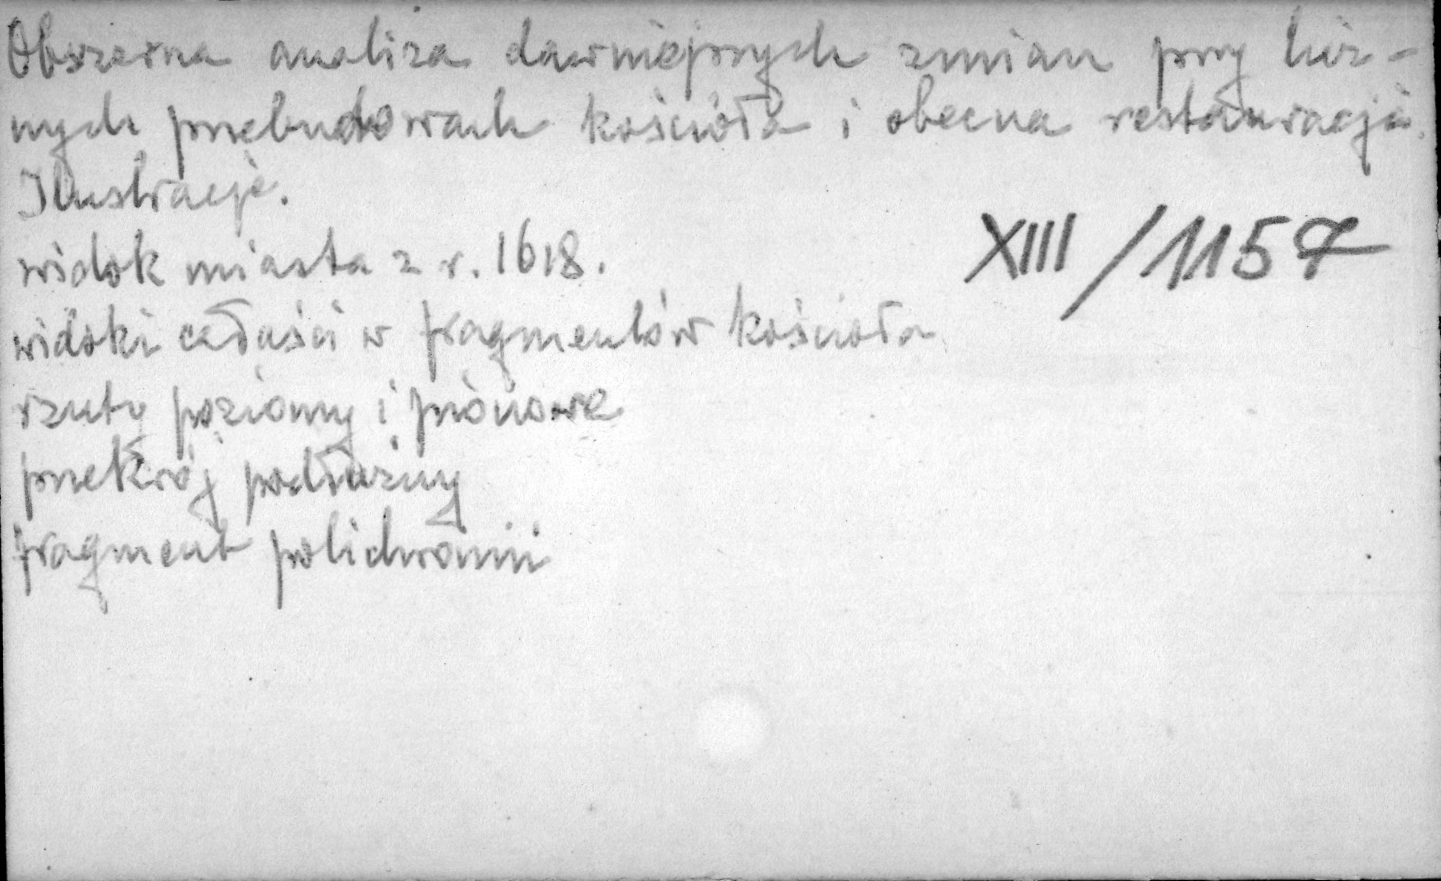 Obszerna analiza dawniejszych zmian przy licz-
nych przebudowach kościoła i obecna restauracja.
Ilustracje.
widok miasta z r. 1618.
XIII/1157
widoki całości w fragmentów kościoła
rzuty poziomy i pionowe
przekrój podłużny
fragment polichromii